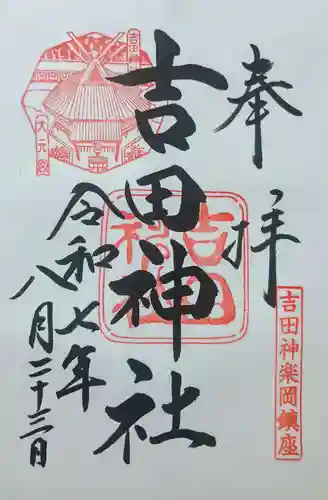 奉拝
吉田神楽岡鎮座
吉田神社
吉田神社
令和七年
八月二十三日
大元宮